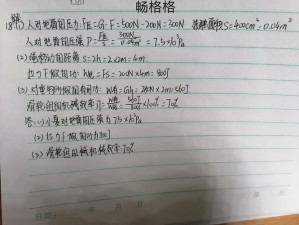 畅格格
18.(1)人对地面压力:F压=G-F=500N-200N=300N 着地面积S=400cm²=0.04m²
人对地面压强P=F压/S=300N/0.04m²=7.5×10³Pa
(2)绳移动距离S=2h=2×2m=4m
拉力F做功W总=FS=200N×4m=800J
(3)对重物所做有用功:W有=Gh=280N×2m=560J
滑轮组的机械效率η=W有/W总=560J/800J×100%=70%
答:(1)小夏对地面压强为7.5×10³Pa
(2)拉力F做功为800J
(3)滑轮组机械效率70%
日期: 年 月 日